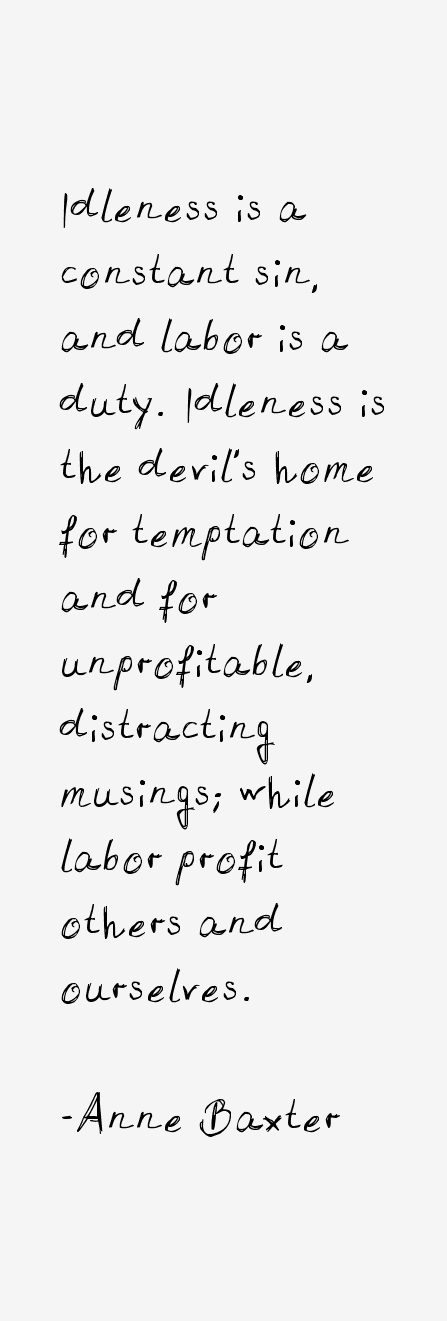 Idleness is a
constant sin,
and labor is a
duty. Idleness is
the devil's home
for temptation
and for
unprofitable,
distracting
musings; while
labor profit
others and
ourselves.
-Anne Baxter